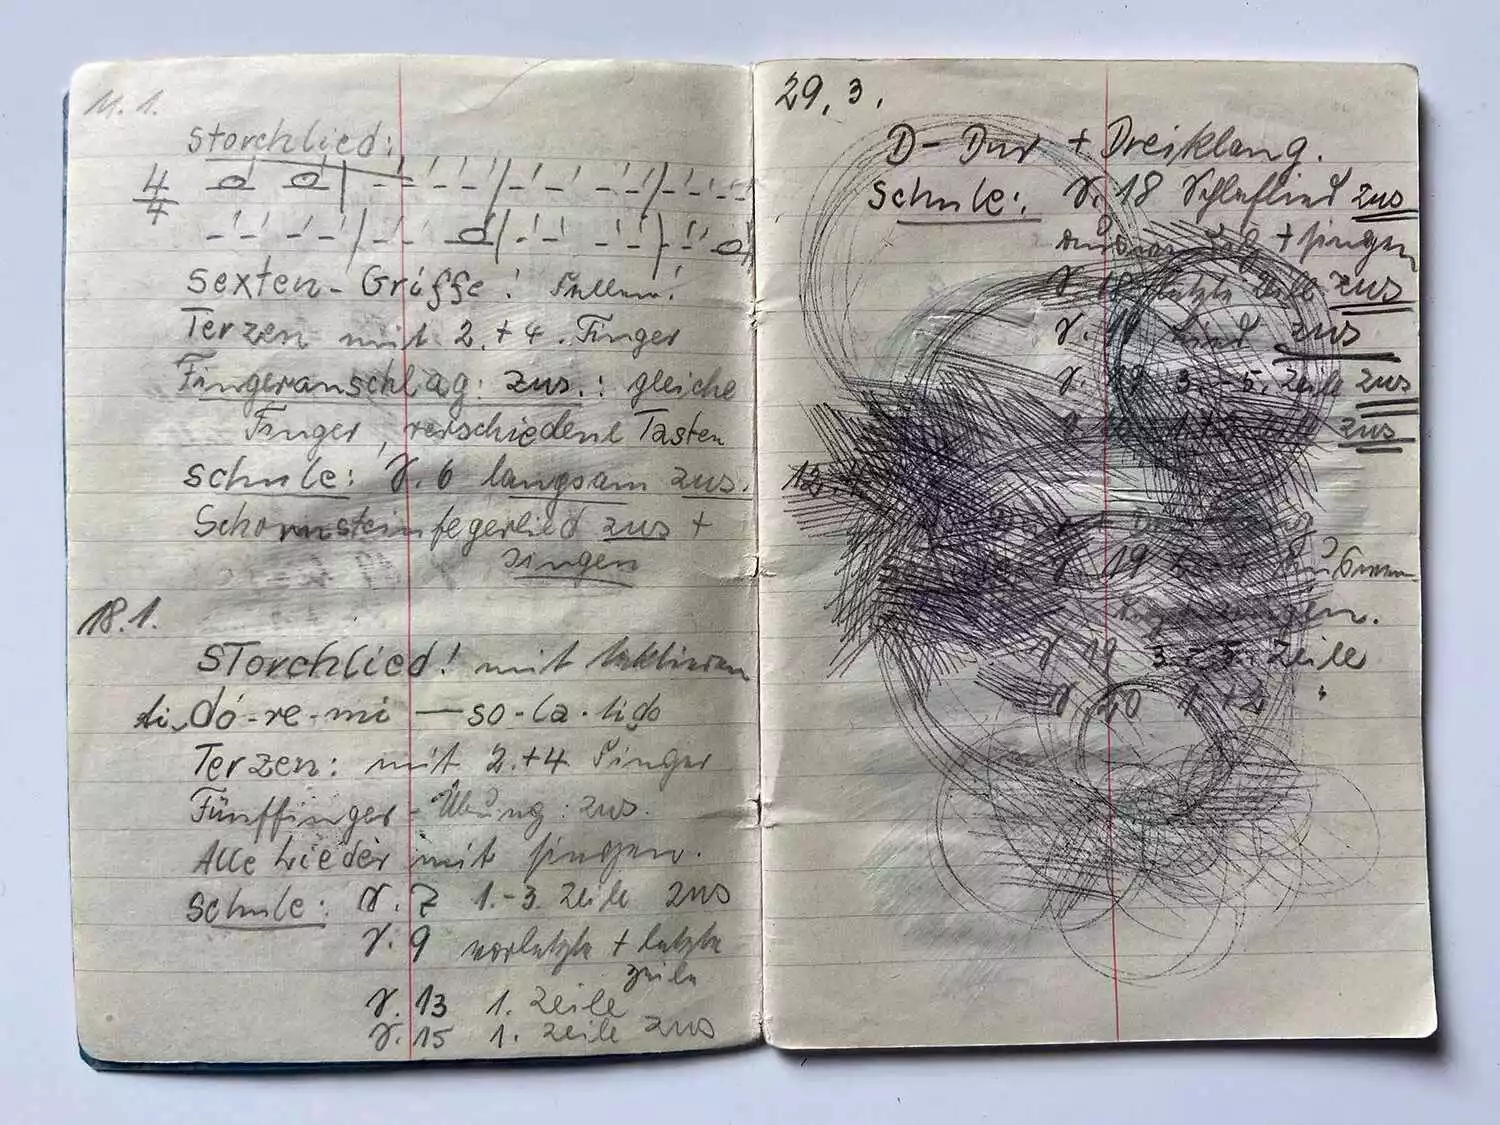 11.1.
Storchlied:
4/4
Sexten-Griffe!
Terzen mit 2.+4. Finger
Fingeranschlag: zus.: gleiche
Finger, verschiedene Tasten
Schule: S. 6 langsam zus.
Schornsteinfegerlied zus +
singen
18.1.
STorchlied! mit taktieren
ti do-re-mi — so-la-tido
Terzen: mit 2.+4 Finger
Fünffinger-Übung: zus.
Alle Lieder mit singen.
Schule: S. 7 1.-3. Zeile zus
S. 9 vorletzte + letzte
Zeile
S. 13 1. Zeile
S. 15 1. Zeile zus
29.3.
D-Dur + Dreiklang.
Schule: S. 18 Schlaflied zus
+ singen
S. 18 letzte Zeile zus
S. 19 Lied zus
S. 19 3.-5. Zeile zus
1.+2. zus
12.4.
S. 19
singen.
S 19 3.-5. Zeile
S 20 1.+2 "